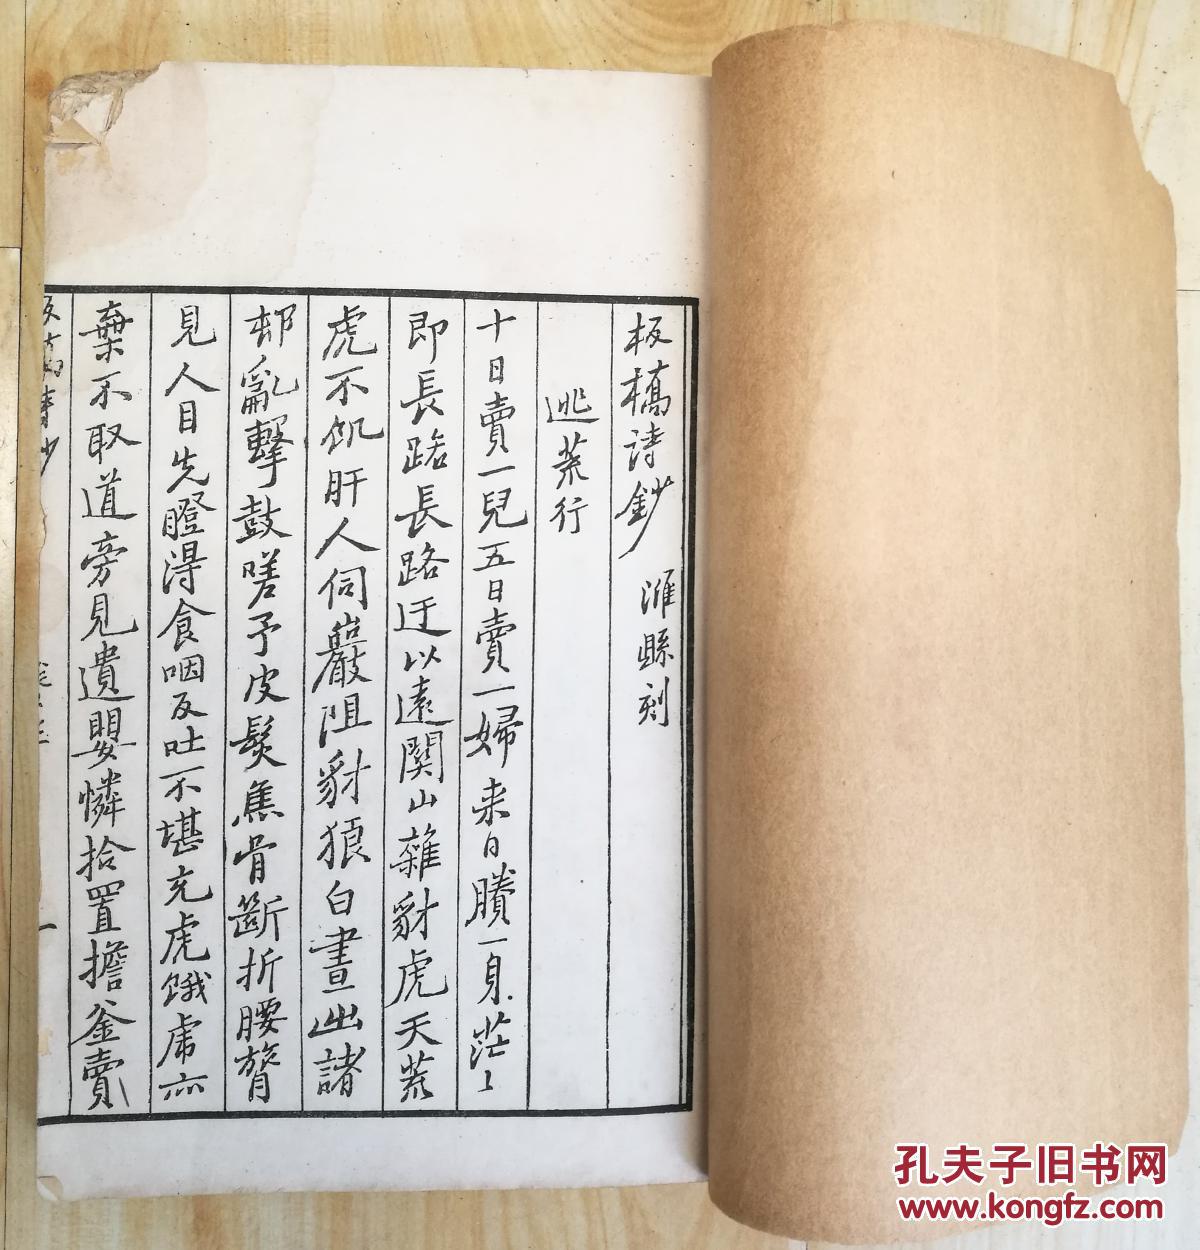 板橋詩鈔 濰縣刻
逃荒行
十日賣一兒五日賣一婦来日賸一身茫〻
即長路長路迂以遠関山雜豺虎天荒
虎不飢肝人伺巖阻豺狼白晝出諸
邨亂擊鼓嗟予皮髮焦骨斷折腰膂
見人目先瞪得食咽反吐不堪充虎餓虎亦
棄不取道旁見遺嬰憐拾置擔釜賣
板橋詩鈔
一
孔夫子旧书网
www.kongfz.com